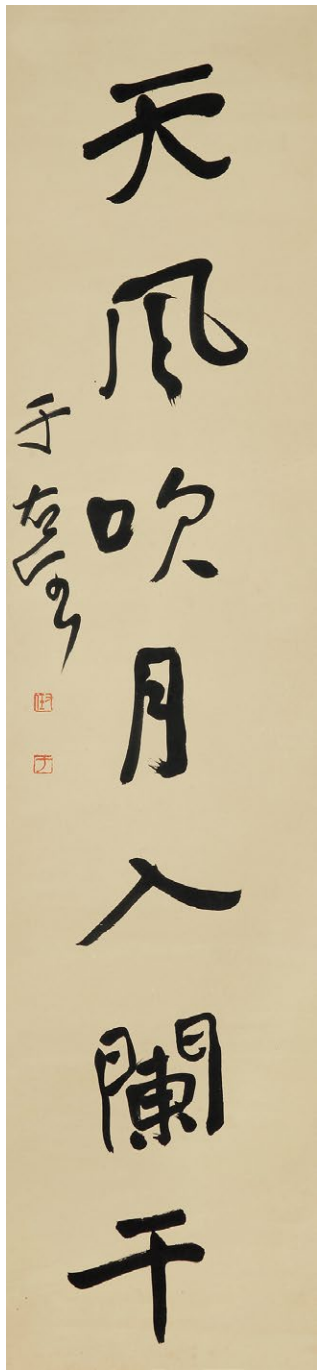 天風吹月入闌干
于右任